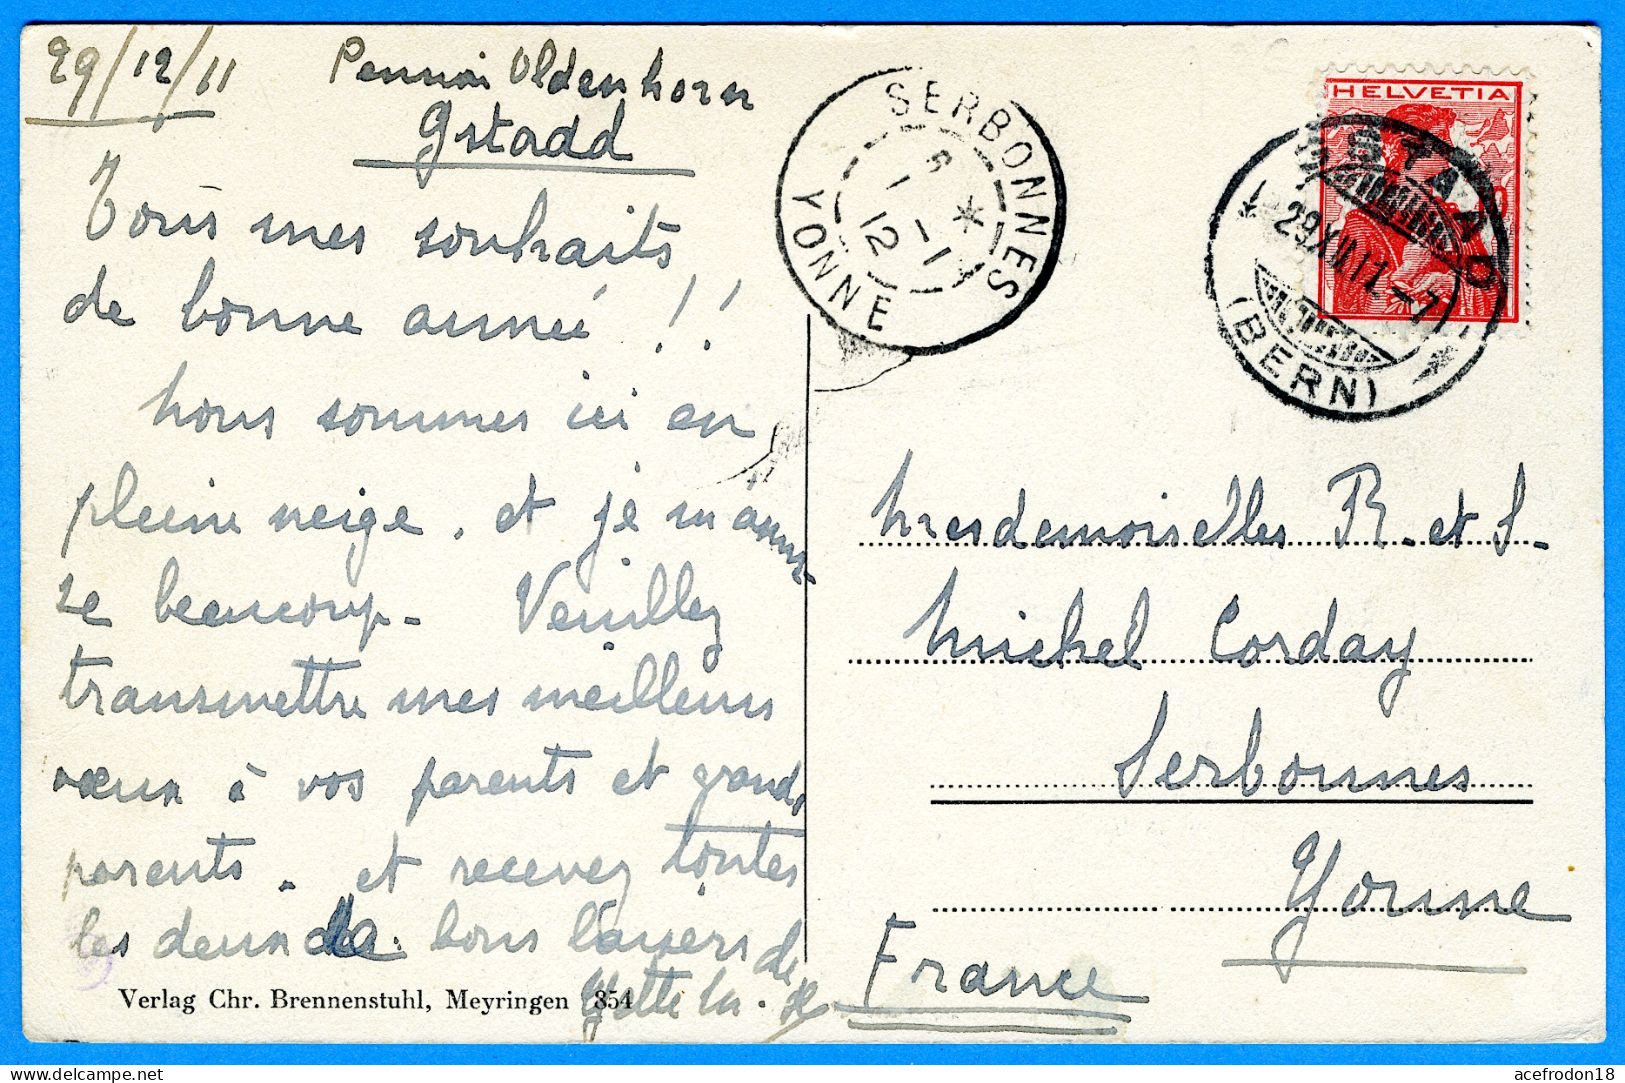 29/12/11 Pension Oldenhorn
Gstadd
Tous mes souhaits
de bonne année !!
nous sommes ici en
pleine neige, et je m'amu
se beaucoup. Veuillez
transmettre mes meilleurs
vœux à vos parents et grands
parents. et recevez toutes
les deux de bons baisers de
Yette
Verlag Chr. Brennenstuhl, Meyringen 354
SERBONNES
YONNE
* 1-1 12
HELVETIA
GSTAAD
29.XII.11.-7
(BERN)
Mesdemoiselles R. et S.
Michel Corday
Serbonnes
Yonne
France
acefrodon18